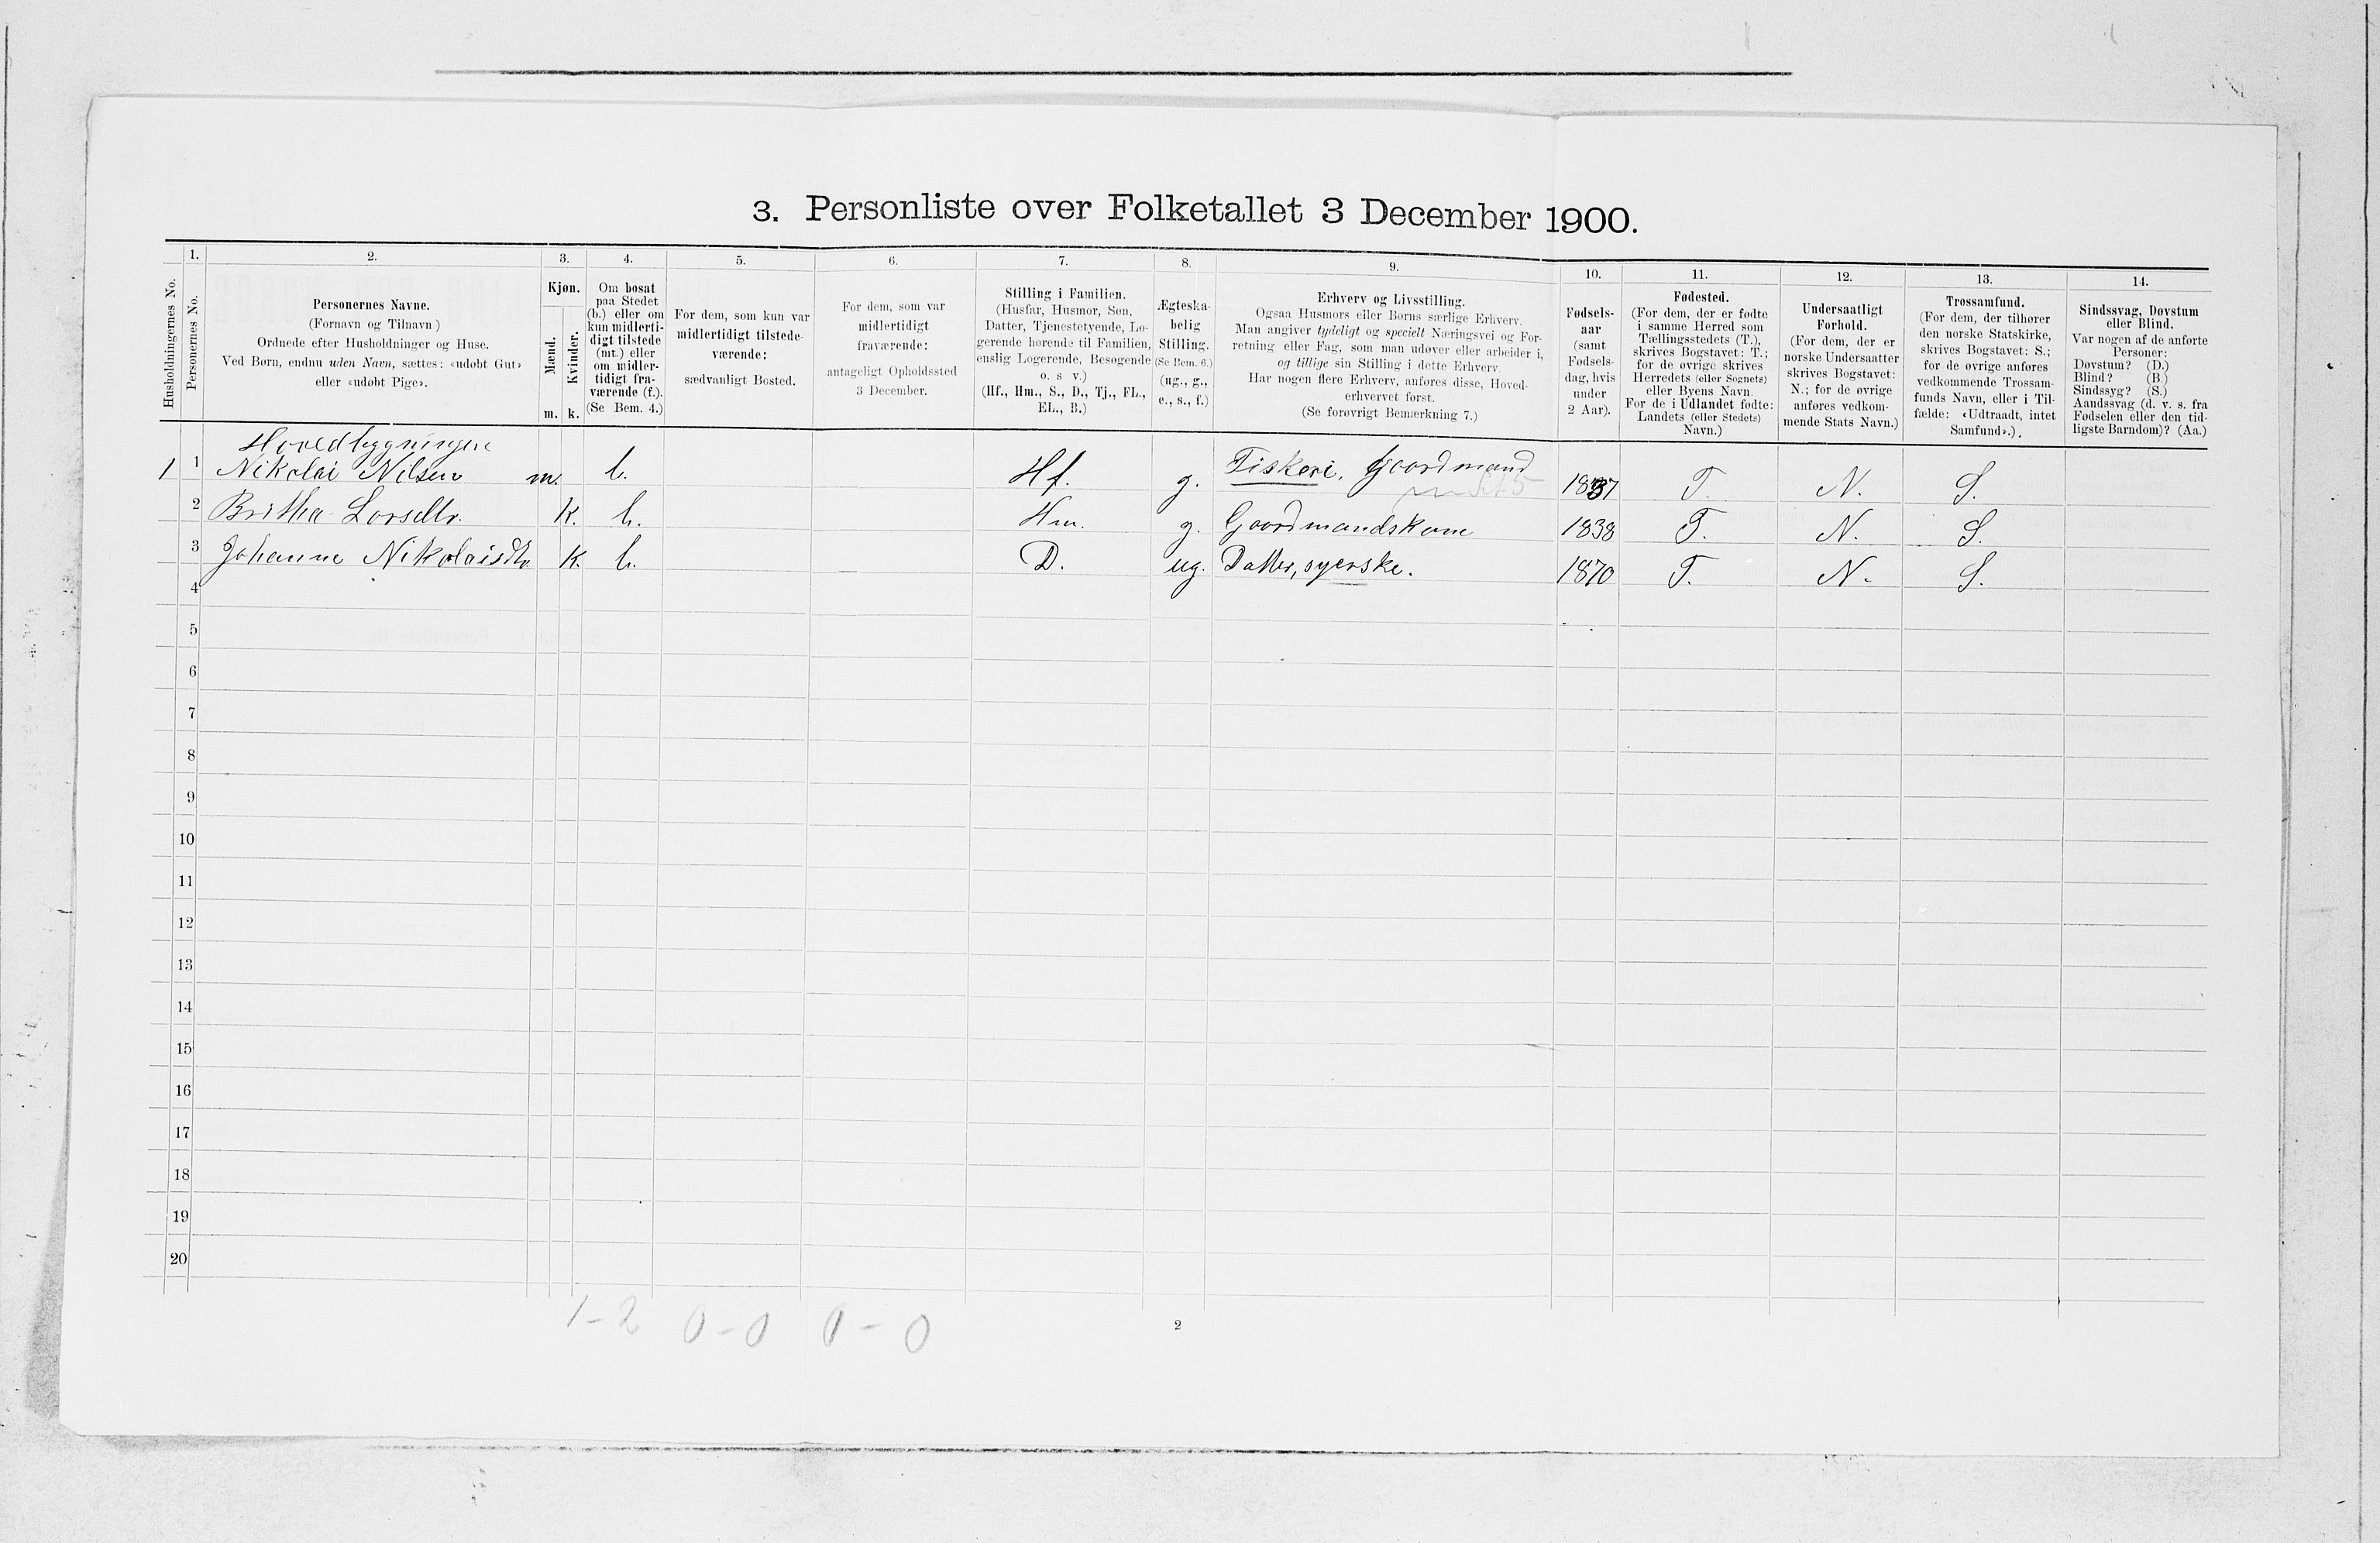 3. Personliste over Folketallet 3 December 1900.
Husholdningernes No.
1.
Personernes No.
2.
Personernes Navne.
(Fornavn og Tilnavn)
Ordnede efter Husholdninger og Huse.
Ved Børn, endnu uden Navn, sættes: «udøbt Gut»
eller «udøbt Pige».
3.
Kjøn.
Mænd.
Kvinder.
m. k.
4.
Om bosat
paa Stedet
(b.) eller om
kun midlerti-
digt tilstede
(mt.) eller
om midler-
tidigt fra-
værende (f.).
(Se Bem. 4.)
5.
For dem, som kun var
midlertidigt tilstede-
værende:
sædvanligt Bosted.
6.
For dem, som var
midlertidigt
fraværende:
antageligt Opholdssted
3 December.
7.
Stilling i Familien.
(Husfar, Husmor, Søn,
Datter, Tjenestetyende, Lo-
gerende hørende til Familien,
enslig Logerende, Besøgende
o. s v.)
(Hf., Hm., S., D., Tj., FL.,
EL., B.)
8.
Ægteska-
belig
Stilling.
(Se Bem. 6.)
(ug., g.,
e., s., f.)
9.
Erhverv og Livsstilling.
Ogsaa Husmors eller Børns særlige Erhverv.
Man angiver tydeligt og specielt Næringsvei og For-
retning eller Fag, som man udøver eller arbeider i,
og tillige sin Stilling i dette Erhverv.
Har nogen flere Erhverv, anføres disse, Hoved-
erhvervet først.
(Se forøvrigt Bemærkning 7.)
10.
Fødsels-
aar
(samt
Fødsels-
dag, hvis
under
2 Aar).
11.
Fødested.
(For dem, der er fødte
i samme Herred som
Tællingsstedets (T.),
skrives Bogstavet: T.;
for de øvrige skrives
Herredets (eller Sognets)
eller Byens Navn.
For de i Udlandet fødte:
Landets (eller Stedets)
Navn.)
12.
Undersaatligt
Forhold.
(For dem, der er
norske Undersaatter
skrives Bogstavet:
N.; for de øvrige
anføres vedkom-
mende Stats Navn.)
13.
Trossamfund.
(For dem, der tilhører
den norske Statskirke,
skrives Bogstavet: S.;
for de øvrige anføres
vedkommende Trossam-
funds Navn, eller i Til-
fælde: «Udtraadt, intet
Samfund».).
14.
Sindssvag, Døvstum
eller Blind.
Var nogen af de anførte
Personer:
Døvstum? (D.)
Blind? (B.)
Sindssyg? (S.)
Aandssvag (d. v. s. fra
Fødselen eller den tid-
ligste Barndom)? (Aa.)
Hovedbygningen
1 1 Nikolai Nilsen m. b. Hf. g. Fiskeri, Gaardmand 1837 T. N. S.
2 Britha Larsdtr. k. b. Hm. g. Gaardmandskone 1838 T. N. S.
3 Johanne Nikolaisdtr. k. b. D. ug. Datter, syerske. 1870 T. N. S.
4
5
6
7
8
9
10
11
12
13
14
15
16
17
18
19
20
1-2 0-0 0-0
2